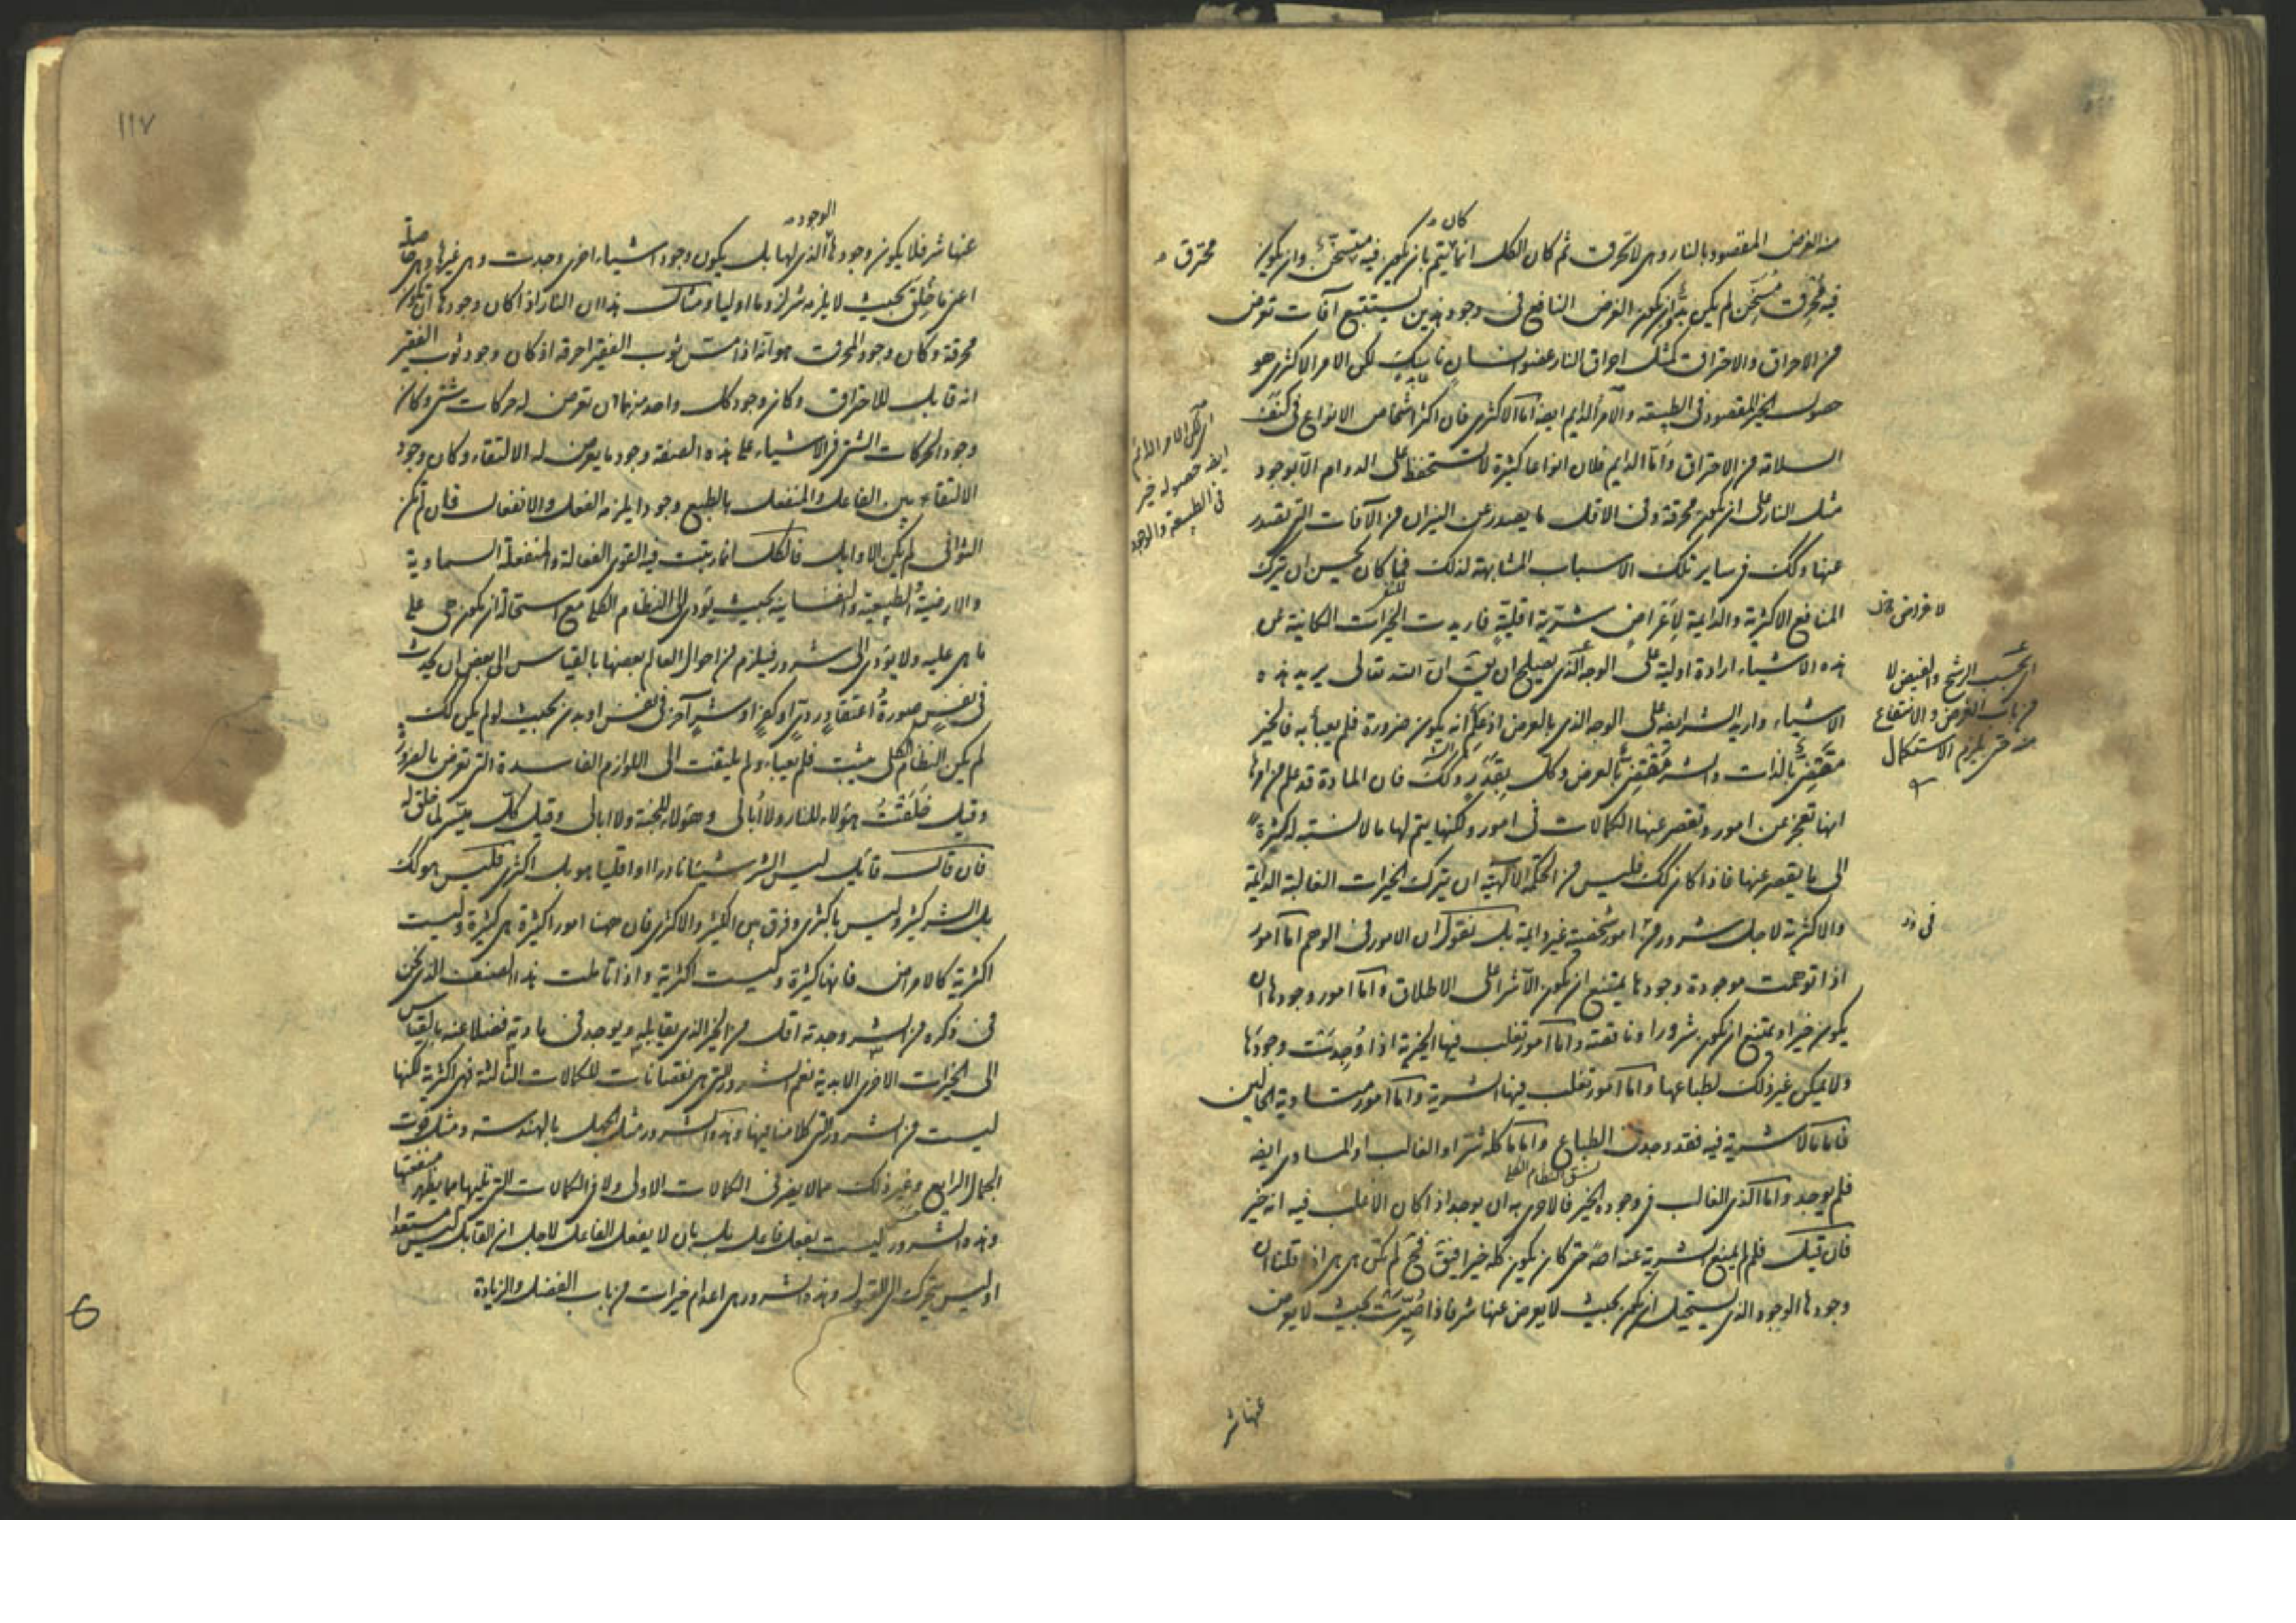 كان
منه الغرض المقصود بالنار وهى لا تحرق ثم كان الكل انما يتم بان يكون فيه متسخن وان يكون
محترق
فيه محرق مسخن لم يكن بد من ان يكون الغرض النافع فى وجود هذين يستتبع آفات تعرض
من الاحراق والاحتراق كمثل احراق النار عضو انسان ناسك لكن الامر الاكثرى هو
حصول الخير المقصود فى الطبيعة والامر الدايم ايضا اما الاكثرى فان اكثر اشخاص الانواع فى كنف
السلامة من الاحتراق واما الدايم فلان انواعا كثيرة لا تستحفظ على الدوام الا بوجود
مثل النار على ان يكون محرقة وفى الاقل ما يصدر عن النيران من الآفات التى تصدر
عنها وكك فى ساير تلك الاسباب المشابهة لذلك فما كان يحسن ان يترك
المنافع الاكثرية والدايمة لاغراض شرية اقلية فاريدت الخيرات الكاينة عن
هذه الاشياء ارادة اولية على الوجه الذى يصلح ان يق ان الله تعالى يريد هذه
الاشياء واريد الشر ايضا على الوجه الذى بالعرض اذ علم انه يكون ضرورة فلم يعبأ به فالخير
مقتضى بالذات والشر مقتضى بالعرض وكل بقدر وكك فان المادة قد علم من امرها
انها تعجز عن امور وتقصر عنها الكمالات فى امور ولكنها يتم لها ما لا نسبة له كثرة
الى ما يقصر عنها فاذا كان كك فليس من الحكمة الالهية ان يترك الخيرات الغالبة الدائمة
والاكثرية لاجل شرور فى امور شخصية غير دايمة بل نقول ان الامور فى الوهم اما امور
اذا توهمت موجودة وجودها يمتنع ان يكون الا شرا على الاطلاق واما امور وجودها ان
يكون خيرا ويمتنع ان يكون شرورا وناقصة واما امور تغلب فيها الخيرية اذا وجدت وجودها
ولا يمكن غير ذلك لطباعها واما امور تغلب فيها الشرية واما امور متساوية الحالين
فاما ما لا شرية فيه فقد وجد فى الطباع واما ما كله شر او الغالب او المساوى ايضا
فلم يوجد واما الذى الغالب فى وجوده الخير فالاحرى به ان يوجد اذا كان الاغلب فيه انه خير
فان قيل فلم لم يمنع الشرية عنه اصلا حتى كان يكون كله خيرا فيق فح لم تكن هى هى اذ قلنا ان
وجودها الوجود الذى يستحيل ان يكون بحيث لا يعرض عنها شر فاذا صيرت بحيث لا يعرض
عنها شر
اى لكن الامر الدائم
ايضا حصول خير
فى الطبيعة والوجود
اى بحسب الرشح والفيض لا
من باب الغرض والانتفاع
منه حتى يلزم الاستكمال
١١٧
الوجود
عنها شر فلا يكون وجودها الذى لها بل يكون وجود اشياء اخرى وجدت وهى غيرها وهى حاصلة
اعنى ما خلق بحيث لا يلزمه شر لزوما اوليا ومثال هذا ان النار اذا كان وجودها ان تكون
محرقة وكان وجود المحرق هو انه اذا مس ثوب الفقير احرقه اذ كان وجود ثوب الفقير
انه قابل للاحتراق وكان وجود كل واحد منهما ان تعرض له حركات شتى وكان
وجود الحركات الشتى فى الاشياء على هذه الصفة وجود ما يعرض له الالتقاء وكان وجود
الالتقاء بين الفاعل والمنفعل بالطبع وجودا يلزمه الفعل والانفعال فان لم يكن
الثوانى لم يكن الاوايل فالكل انما رتبت فيه القوى الفعالة والمنفعلة السماوية
والارضية الطبيعية والنفسانية بحيث يؤدى الى النظام الكلى مع استحالة ان يكون هى على
ما هى عليه ولا يؤدى الى شرور فيلزم من احوال العالم بعضها بالقياس الى بعض ان يحدث
فى نفس صورة اعتقاد ردى او كفر او شر آخر فى نفس او بدن بحيث لو لم يكن كك
لم يكن النظام الكلى يثبت فلم يعبأ ولم يلتفت الى اللوازم الفاسدة التى تعرض بالضرورة
وقيل خلقت هؤلاء للنار ولا ابالى وهؤلاء للجنة ولا ابالى وقيل كل ميسر لما خلق له
فان قال قايل ليس الشر شيئا نادرا او اقليا هو بل اكثرى فليس هو كك
بل الشر كثير وليس باكثرى وفرق بين الكثير والاكثرى فان ههنا امورا كثيرة هى كثيرة وليست
اكثرية كالامراض فانها كثيرة وليست اكثرية واذا تاملت هذا الصنف الذى نحن
فى ذكره من الشر وجدته اقل من الخير الذى يقابله ويوجد فى مادته فضلا عنه بالقياس
الى الخيرات الاخرى الابدية نعم الشرور التى هى نقصانات للكمالات الثالثة فهى اكثرية لكنها
ليست من الشرور التى كلامنا فيها وهذه الشرور مثل الجهل بالهندسة ومثل فوت
الجمال الرايع وغير ذلك مما لا يضر فى الكمالات الاولى ولا فى الكمالات التى تليها مما يظهر منفعتها
وهذه الشرور ليست بفعل فاعل بل بان لا يفعل الفاعل لاجل ان القابل ليس مستعدا
او ليس يتحرك الى القبول وهذه الشرور هى اعدام خيرات من باب الفضل والزيادة